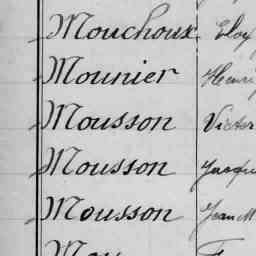 Mouchoux Eloy
Mounier Henri
Mousson Victor
Mousson
Mousson Jean M